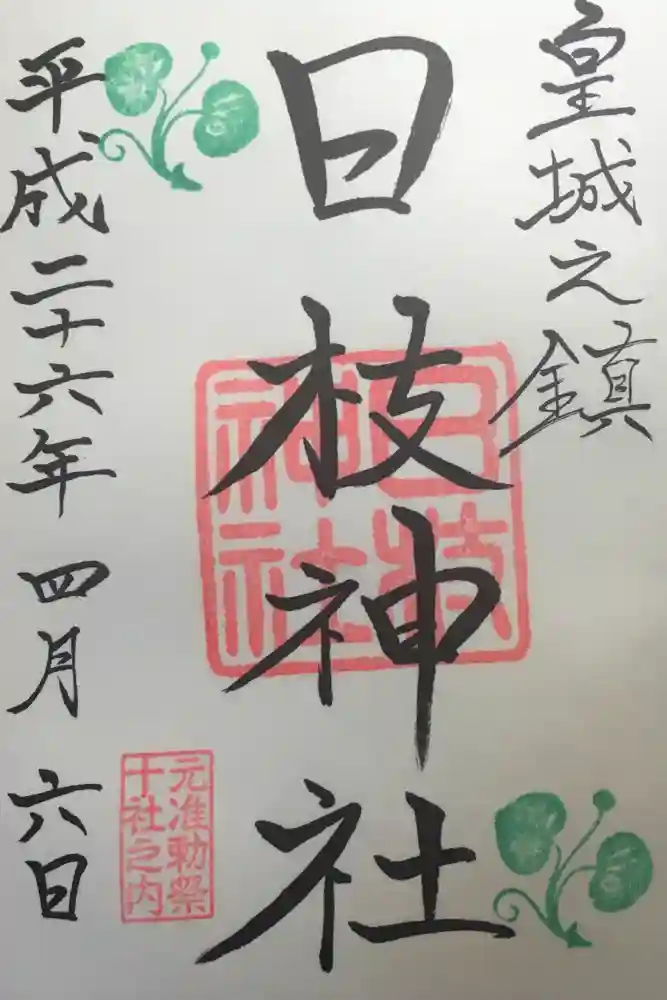 皇城之鎮
日枝神社
日枝神社
元准勅祭
十社之内
平成二十六年四月六日